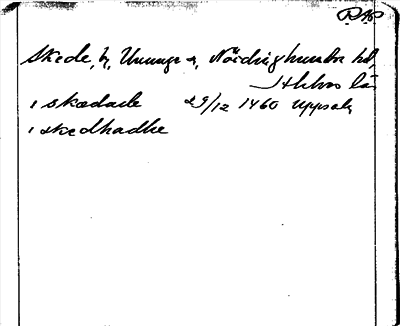 Skede, by, Ununge s, Närdinghundra hd,
Sthlms lä
i skædade 29/12 1460 Uppsala
i skedhadhe